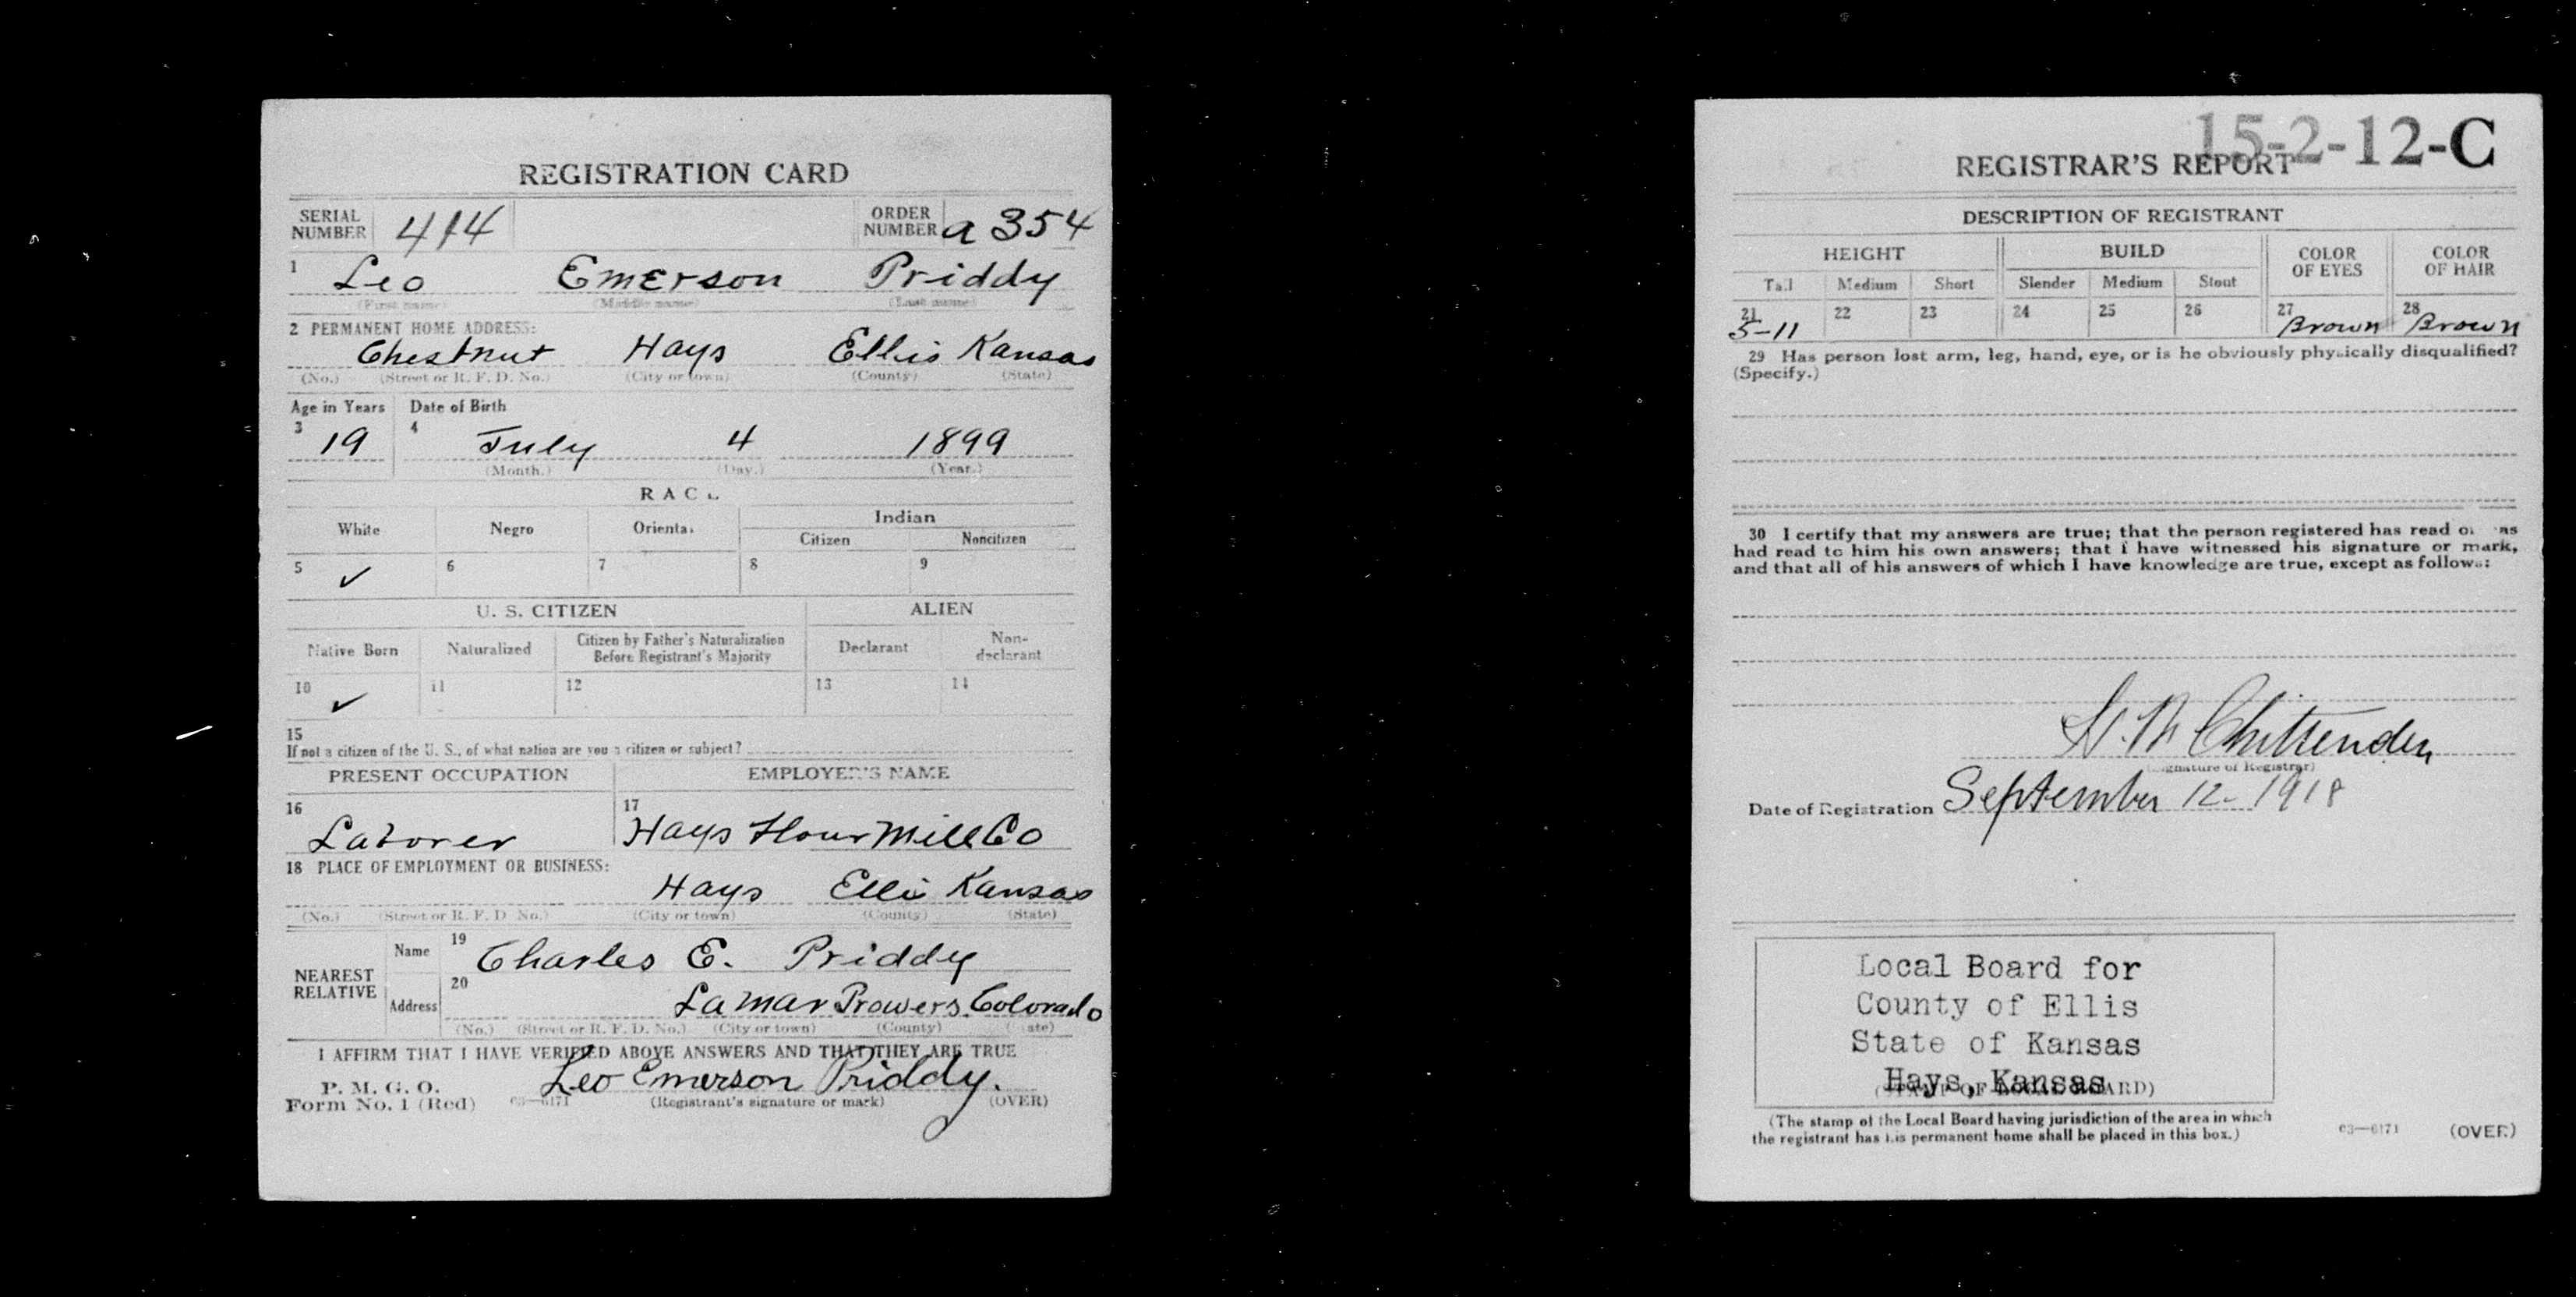 REGISTRATION CARD
SERIAL NUMBER 414 ORDER NUMBER a 354
1 Leo Emerson Priddy
(First name) (Middle name) (Last name)
2 PERMANENT HOME ADDRESS:
Chestnut Hays Ellis Kansas
(No.) (Street or R. F. D. No.) (City or town) (County) (State)
Age in Years Date of Birth
3 19 4 July 4 1899
(Month.) (Day.) (Year.)
RACE
White Negro Oriental Indian
Citizen Noncitizen
5 ✓ 6 7 8 9
U. S. CITIZEN ALIEN
Native Born Naturalized Citizen by Father's Naturalization Before Registrant's Majority Declarant Non-declarant
10 ✓ 11 12 13 14
15
If not a citizen of the U. S., of what nation are you a citizen or subject?
PRESENT OCCUPATION EMPLOYER'S NAME
16 Laborer 17 Hays Flour Mill Co
18 PLACE OF EMPLOYMENT OR BUSINESS:
Hays Ellis Kansas
(No.) (Street or R. F. D. No.) (City or town) (County) (State)
NEAREST RELATIVE Name 19 Charles E. Priddy
Address 20 Lamar Prowers Colorado
(No.) (Street or R. F. D. No.) (City or town) (County) (State)
I AFFIRM THAT I HAVE VERIFIED ABOVE ANSWERS AND THAT THEY ARE TRUE
P. M. G. O.
Form No. 1 (Red) 03—6171 Leo Emerson Priddy.
(Registrant's signature or mark) (OVER)
15-2-12-C
REGISTRAR'S REPORT
DESCRIPTION OF REGISTRANT
HEIGHT BUILD COLOR OF EYES COLOR OF HAIR
Tall Medium Short Slender Medium Stout
21 5-11 22 23 24 25 26 27 Brown 28 Brown
29 Has person lost arm, leg, hand, eye, or is he obviously physically disqualified?
(Specify.)
30 I certify that my answers are true; that the person registered has read or has
had read to him his own answers; that I have witnessed his signature or mark,
and that all of his answers of which I have knowledge are true, except as follows:
Chittenden
(Signature of Registrar)
Date of Registration September 12- 1918
Local Board for
County of Ellis
State of Kansas
Hays, Kansas
(STAMP OF LOCAL BOARD)
(The stamp of the Local Board having jurisdiction of the area in which
the registrant has his permanent home shall be placed in this box.)
03—6171 (OVER)